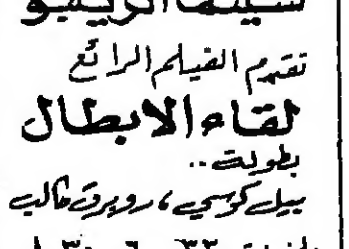 سينما الريفو
تقدم الفيلم الرائع
لقاء الابطال
بطولة..
بيل كوسبي ، روبرت كالب